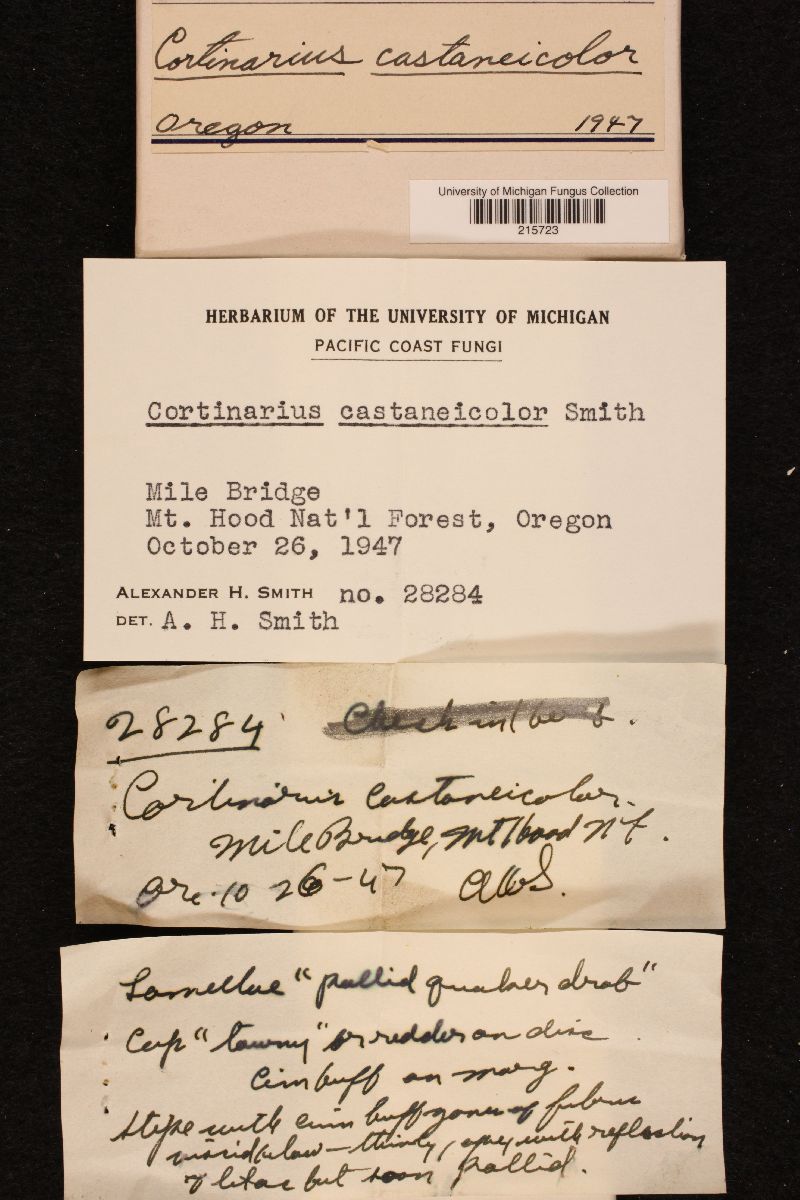 Cortinarius castaneicolor
Oregon 1947
University of Michigan Fungus Collection
215723
HERBARIUM OF THE UNIVERSITY OF MICHIGAN
PACIFIC COAST FUNGI
Cortinarius castaneicolor Smith
Mile Bridge
Mt. Hood Nat'l Forest, Oregon
October 26, 1947
ALEXANDER H. SMITH no. 28284
DET. A. H. Smith
28284 Check
Cortinarius castaneicolor.
Mile Bridge, Mt Hood N.F.
Ore. 10 26-47 AHS.
Lamellae "pallid quaker drab"
Cap "tawny" or redder on disc
Cinn buff on marg.
Stipe with cinn buff zones of fibrils
below - thinly, apex with reflection
of lilac but soon pallid.